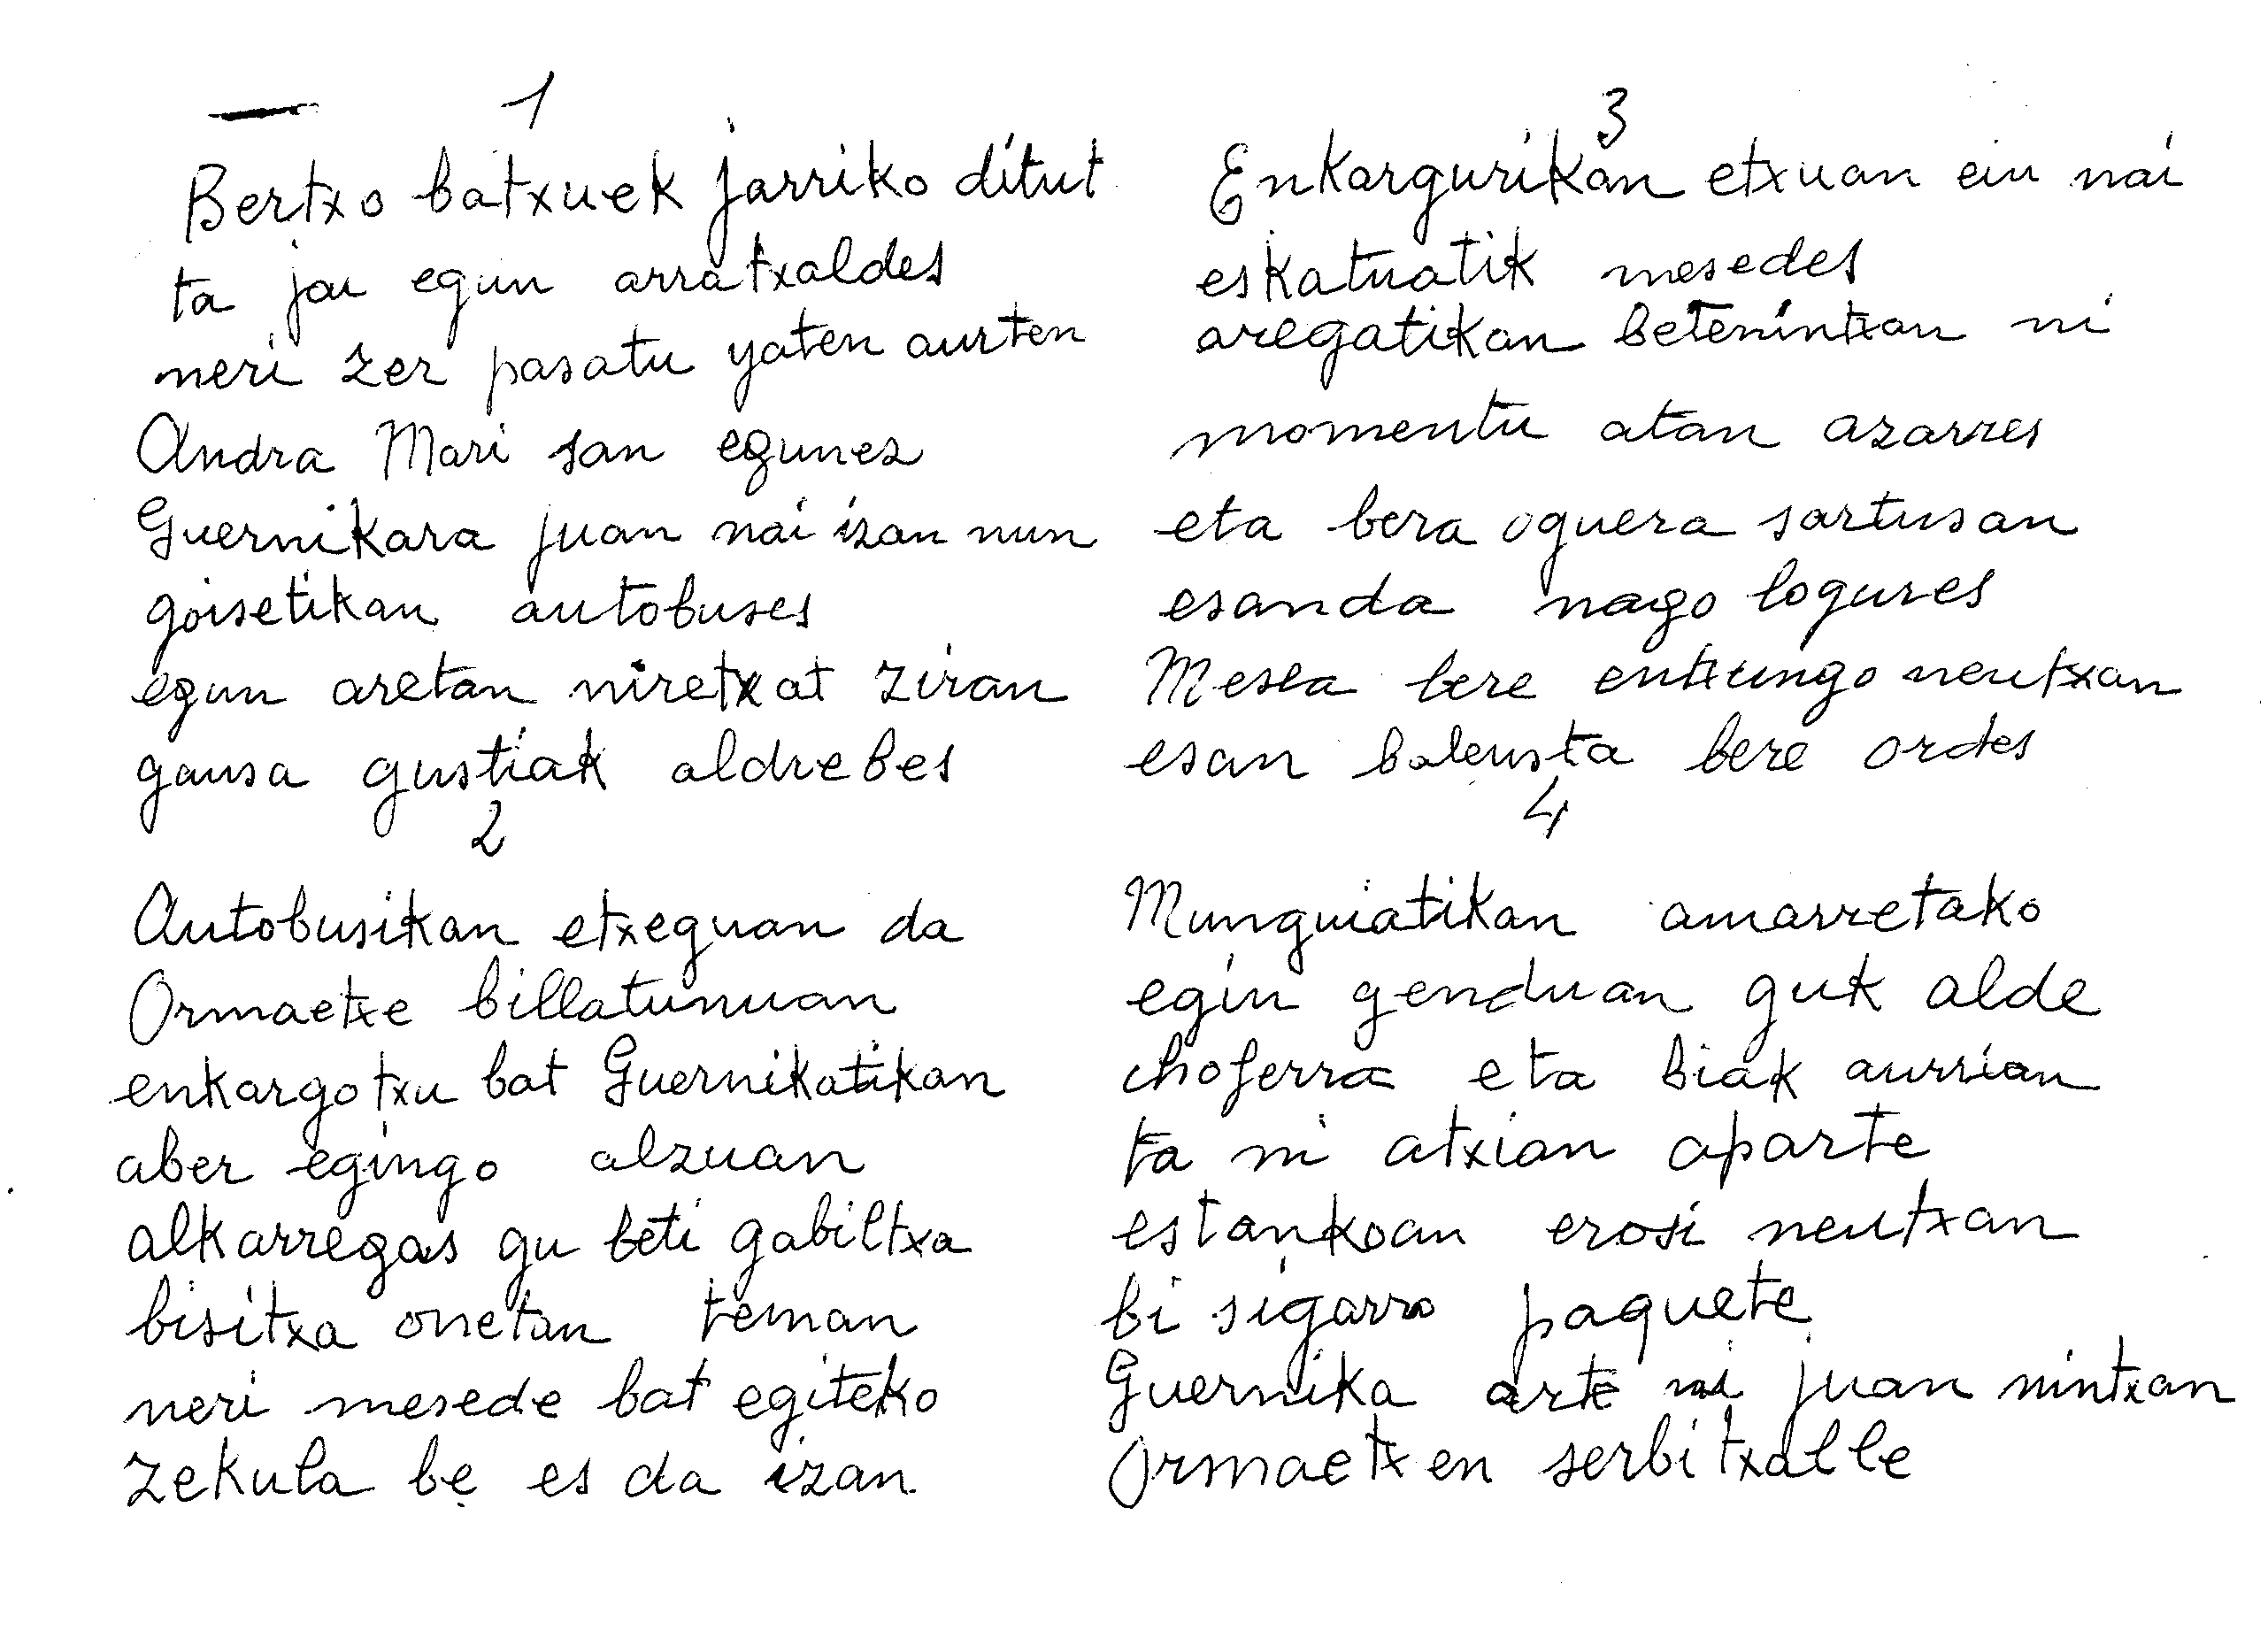 1
Bertxo batxuek jarriko ditut
ta jai egun arratxaldes
neri zer pasatu yaten aurten
Andra Mari san egunez
Guernikara juan nai izan nun
goisetikan autobuses
egun aretan niretxat ziran
gausa gustiak aldrebes
2
Autobusikan etxeguan da
Ormaetxe billatunuan
enkargotxu bat Guernikatikan
aber egingo alzuan
alkarregas gu beti gabiltxa
bisitxa onetan teman
neri mesede bat egiteko
zekula be es da izan
3
Enkargurikan etxuan ein nai
eskatuatik mesedes
aregatikan betenintxan ni
momentu atan azarres
eta bera oguera sartusan
esanda nago logures
Mesea bere entxungo neutxan
esan baleusta bere ordes
4
Munguiatikan amarretako
egin genduan guk alde
choferra eta biak aurrian
ta ni atxian aparte
estankoan erosi neutxan
bi sigarro paquete
Guernika arte ni juan nintxan
Ormaetxen serbitxalle